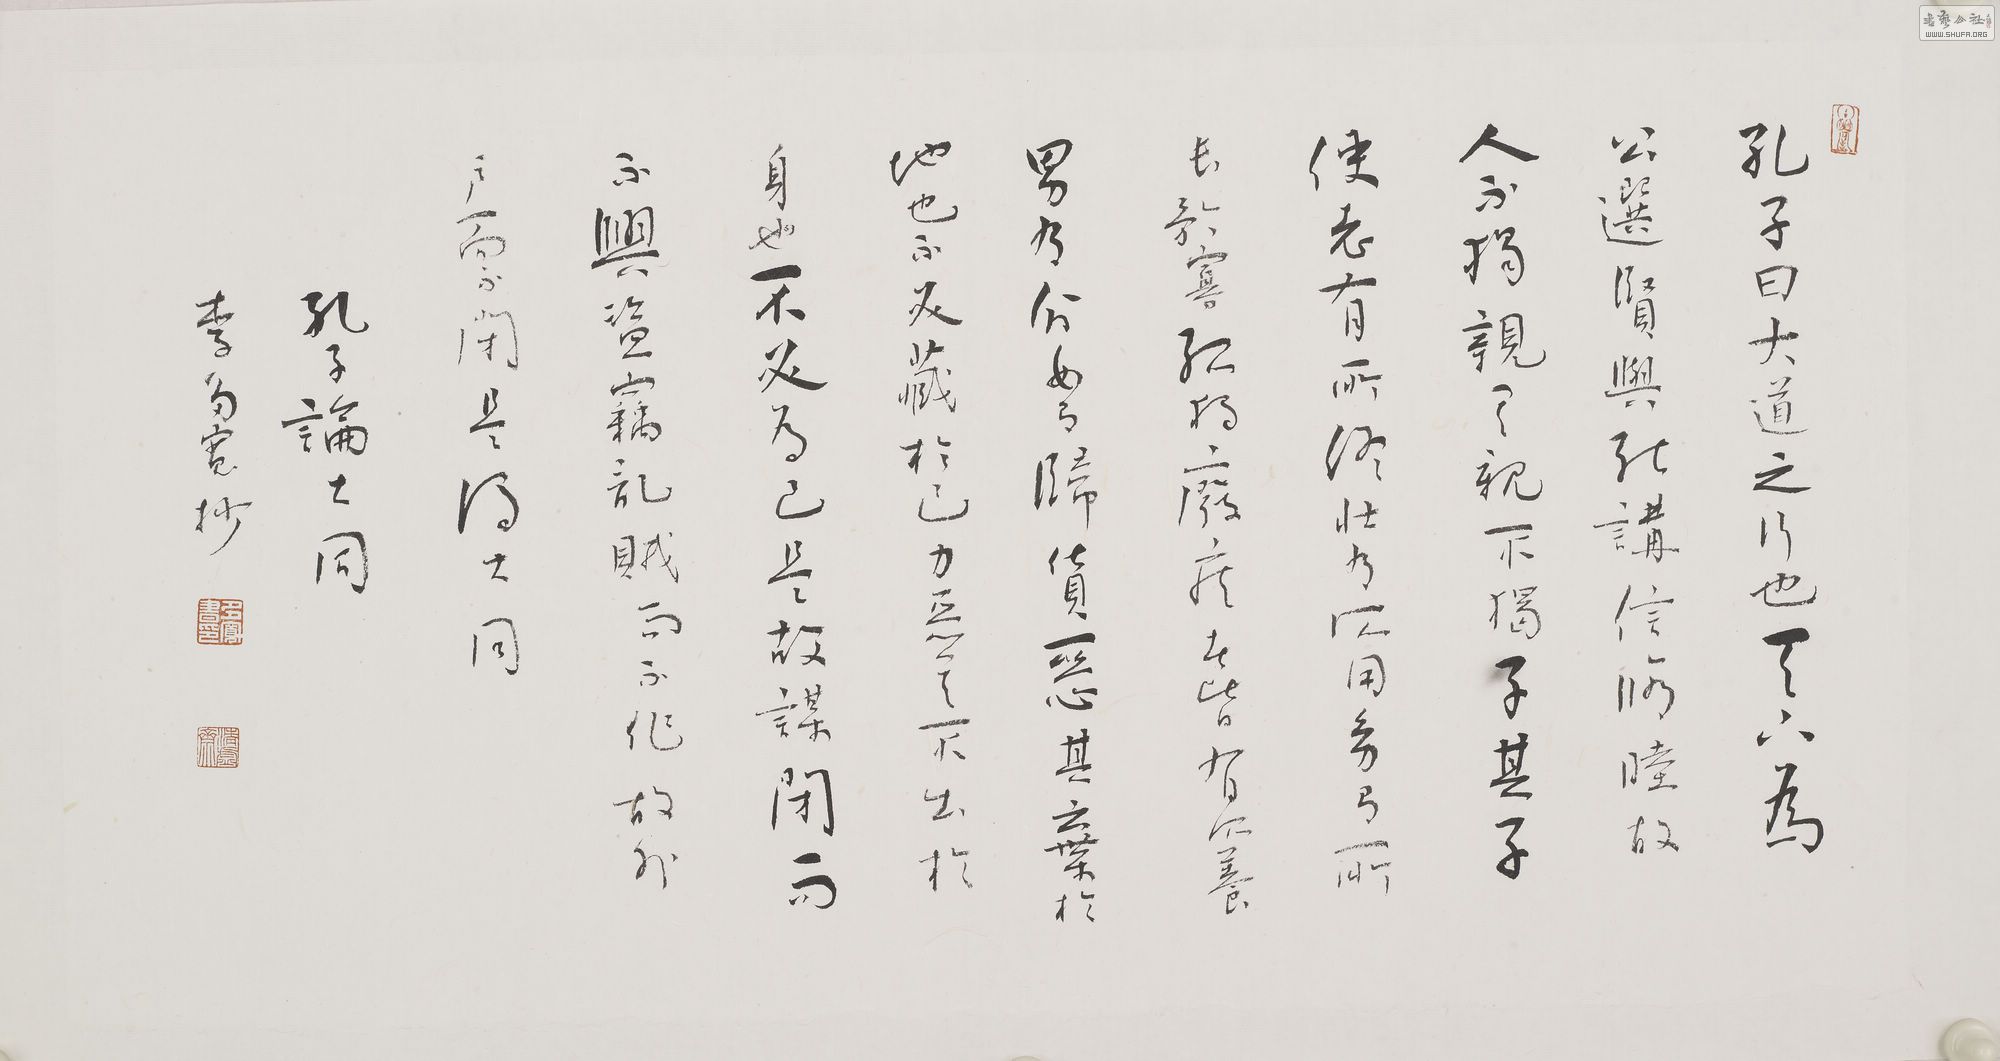 孔子曰大道之行也天下為
公選賢與能講信修睦故
人不獨親其親不獨子其子
使老有所終壯有所用幼有所
長矜寡孤獨廢疾者皆有所養
男有分女有歸貨惡其棄於
地也不必藏於己力惡其不出於
身也不必為己是故謀閉而
不興盜竊乱賊而不作故外
戶而不閉是謂大同
孔子論大同
李寬抄
書藝公社
WWW.SHUFA.ORG